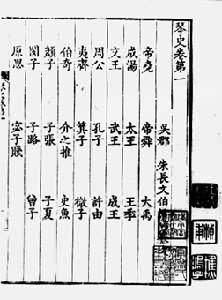 琴史卷第一
吳郡 朱長文伯
帝堯 帝舜 大禹
成湯 太王 王季
文王 武王 成王
周公 孔子 許由
夷齊 箕子 微子
伯奇 介之推 史魚
顏子 子張 子夏
閔子 子路 曾子
原思 宓子賤